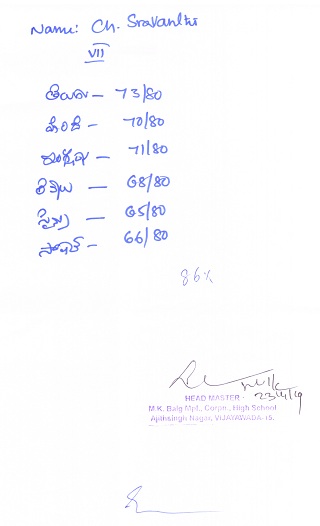 Name: Ch. Sravanthi
VII
తెలుగు – 73/80
హింది – 70/80
ఇంగ్లీషు – 71/80
లెక్కలు – 68/80
సైన్సు – 65/80
సోషల్ – 66/80
86%
HEAD MASTER
M.K. Baig Mpl., Corpn., High School
Ajithsingh Nagar, VIJAYAWADA-15.